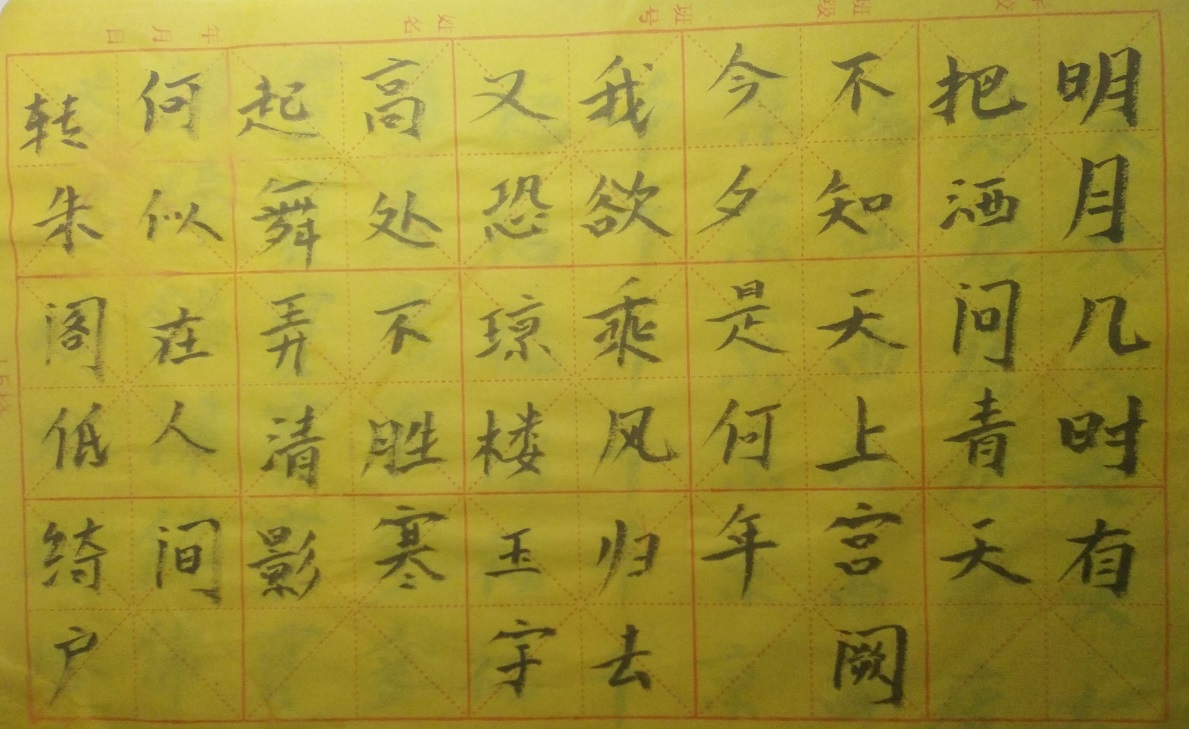 明月几时有
把酒问青天
不知天上宫阙
今夕是何年
我欲乘风归去
又恐琼楼玉宇
高处不胜寒
起舞弄清影
何似在人间
转朱阁低绮户
姓名
年月日